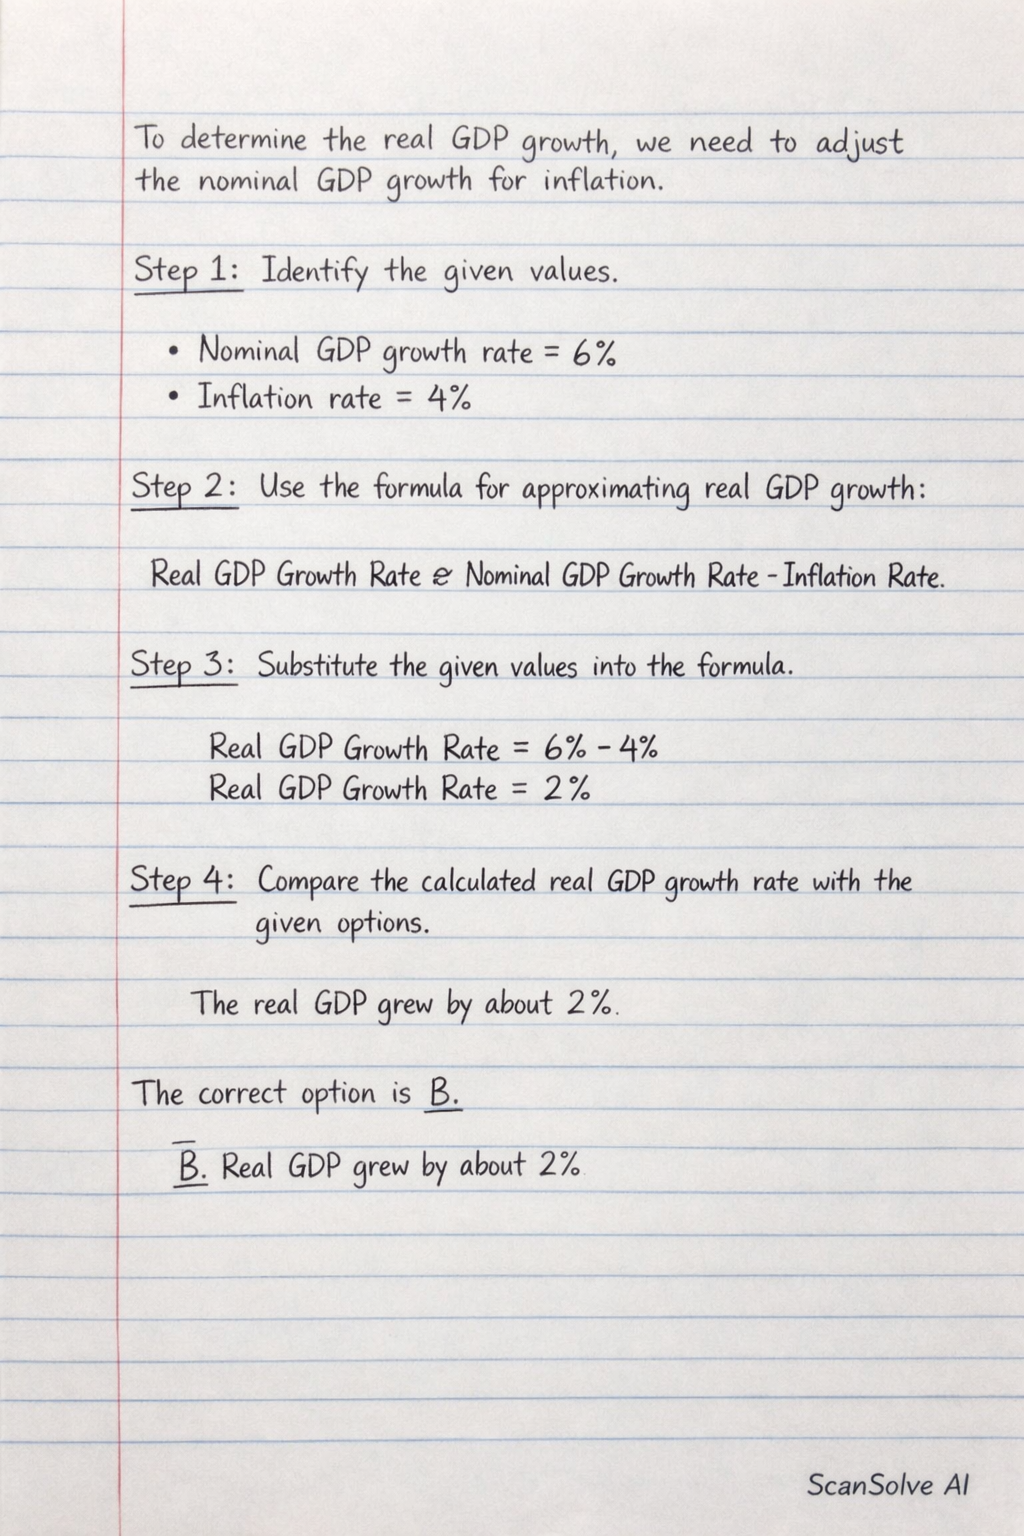 To determine the real GDP growth, we need to adjust
the nominal GDP growth for inflation.
Step 1: Identify the given values.
• Nominal GDP growth rate = 6%
• Inflation rate = 4%
Step 2: Use the formula for approximating real GDP growth:
Real GDP Growth Rate Nominal GDP Growth Rate - Inflation Rate.
Step 3: Substitute the given values into the formula.
Real GDP Growth Rate = 6% - 4%
Real GDP Growth Rate = 2%
Step 4: Compare the calculated real GDP growth rate with the
given options.
The real GDP grew by about 2%.
The correct option is B.
B. Real GDP grew by about 2%
ScanSolve AI